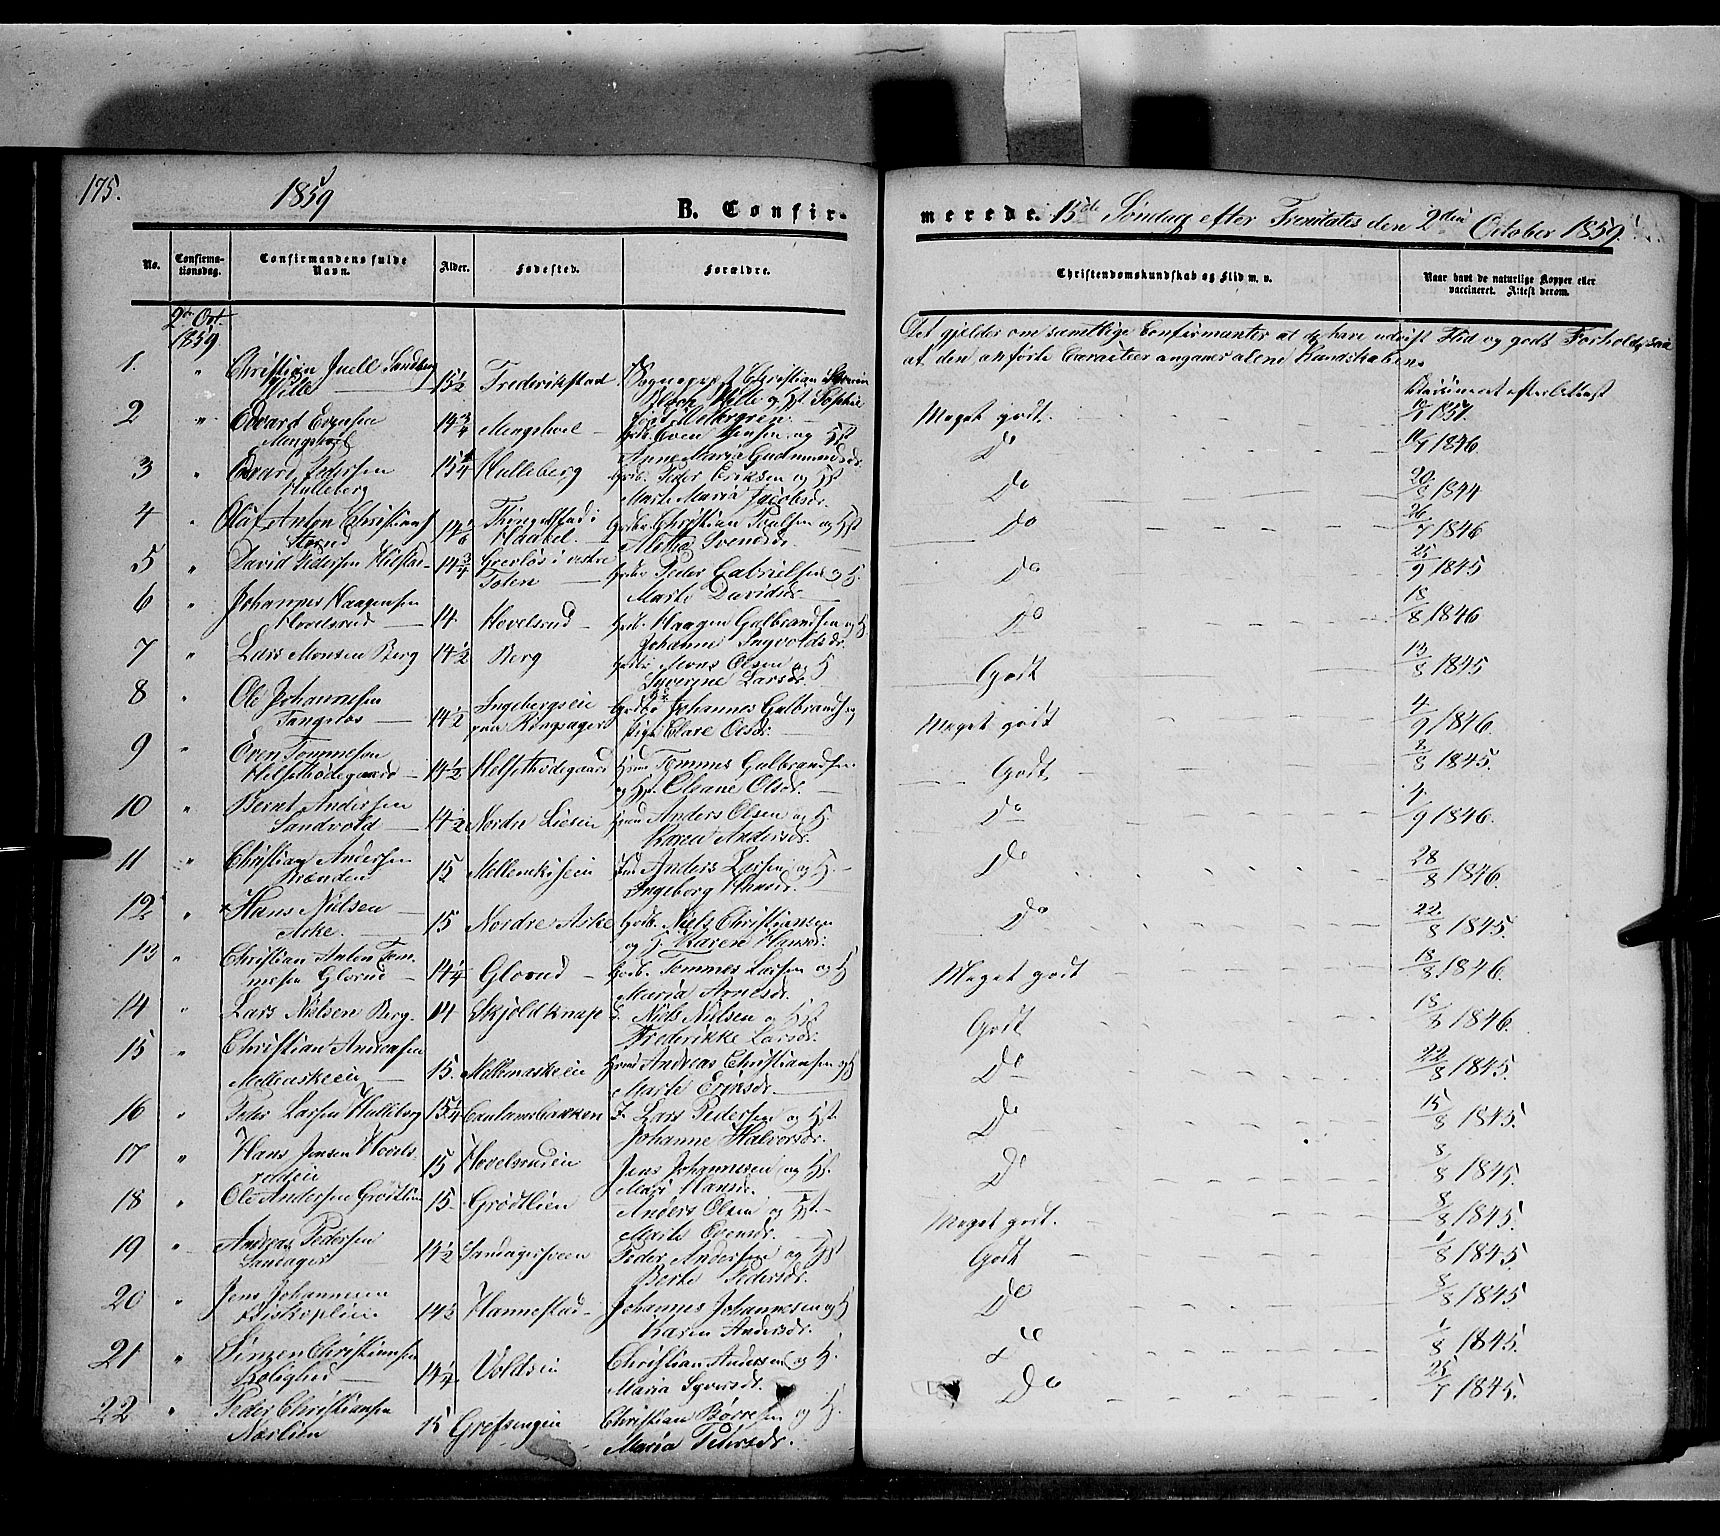 175.
1859
B. Confir-
merede. 15de Søndag efter Trenitates den 2den October 1859.
No.
Confirma-
tionsdag.
Confirmandens fulde
Navn.
Alder.
Fødested.
Forældre.
Christendomskundskab og Flid m. v.
Naar havt de naturlige Kopper eller
vaccineret. Attest derom.
2den Oct.
1859
Det gjelder om samtlige Confirmanter at de have udvist Flid og godt Forhold, saa
at den anførte Caracter angaaer alene Kundskaben
1. " Christian Juell Sandberg
Hille 15 1/2 Frederikstad Sognepræst Christian
Hille og Sophie
10/7 1851.
2 " Edvard Evensen
Mengshoel 14 3/4 Mengshoel - Even Jensen og Hst
Anne Maria Gudmundsdr.
Meget godt. 11/9 1846
3 " Edvard Pedersen
Hulleberg 15 1/4 Hulleberg Gdb. Peder Eriksen og Hst
Marthe Maria Jacobsdr.
Do 20/8 1844
4 " Olaf Anton Christians
14 5/6 Tingelstad i
Christian Paulsen og Hst
Svendsdr.
Do 26/7 1846
5 " David Pedersen 14 3/4 Grevløs i vestre
Toten Peder Gabrielsen og H.
Marte Davidsdr.
Do 25/9 1845
6 " Johannes Haagensen
Hovelsrud 14 Hovelsrud - Gdb. Haagen Gulbrandsen og H.
Johanne Ingvoldsdr.
Do 18/8 1846
7 " Lars Monsen Berg 14 1/2 Berg Mons Olsen og H
Syverine Larsdr.
Godt 13/8 1845
8 " Ole Johannesen
Tangelos 14 1/2 Ingebergseie
paa Ringsager Johannes Gulbrands og
Pige Olsdr.
Meget godt 4/9 1846
9 " Even Tommesen
Helsethødegaard 14 1/2 Helsethødegaard Tommes Gulbrandsen
og Hst. Oleane Olsdr.
Godt 8/8 1845.
10 " Bernt Andersen
Sandvold 14 1/2 Nordre Lieseie Anders Olsen og H.
Karen Andersdr.
Do 4/9 1846.
11 " Christian Andersen
Brænden 15 Anders Larsen og H.
Ingeborg Hansdr.
Do 28/8 1846.
12 " Hans Nielsen
Aske. 15 Nordre Aske Gdb. Niels Christiansen
og H. Karen Hansdr.
Do 22/8 1845.
13 " Christian Anton Tom-
mesen Glorud 14 1/4 Glorud - Gdb. Tommes Larsen og H
Maria Arnesdr.
Meget godt 18/8 1846
14 " Lars Nielsen Berg. 14 Skjoldknap Niels Nielsen og Hst
Frederikke Larsdr.
Godt 15/8 1846.
15 " Christian Andreasen
Mellemaskeeie 15. Mellemaskeeie Andreas Christiansen og H
Marte Evensdr.
Do 22/8 1845.
16 " Peder Larsen Hulleberg 15 1/4 Lars Pedersen og Hst.
Johanne Halvorsdr.
Do 15/8 1845.
17 " Hans Jensen Hovels-
rudeie 15 Hovelsrudeie Jens Johannesen og Hst.
Mari Hansdr.
Do 8/8 1845.
18 " Ole Andersen Grøtlien 15. Grøtlien Anders Olsen og Hst
Marte Evensdr.
Meget godt. 8/8 1845.
19 " Andreas Pedersen
Sandager 14 1/2 Sandagerseen Peder Andersen og Hst
Berte Pedersdr.
Godt 1/8 1845
20 " Jens Johannesen
Biskoplien 14 1/2 Hannestad- Johannes Johannesen og H
Karen Andersdr.
Do 8/8 1845
21 " Simen Christiansen
Rolighed 14 1/4 Voldseie Christian Andersen og H.
Maria Syversdr.
Do 1/8 1845.
22 " Peder Christiansen
Næslien 15 Grefsengeie Christian Børresen og H.
Maria Pedersdr.
Do 25/7 1845.